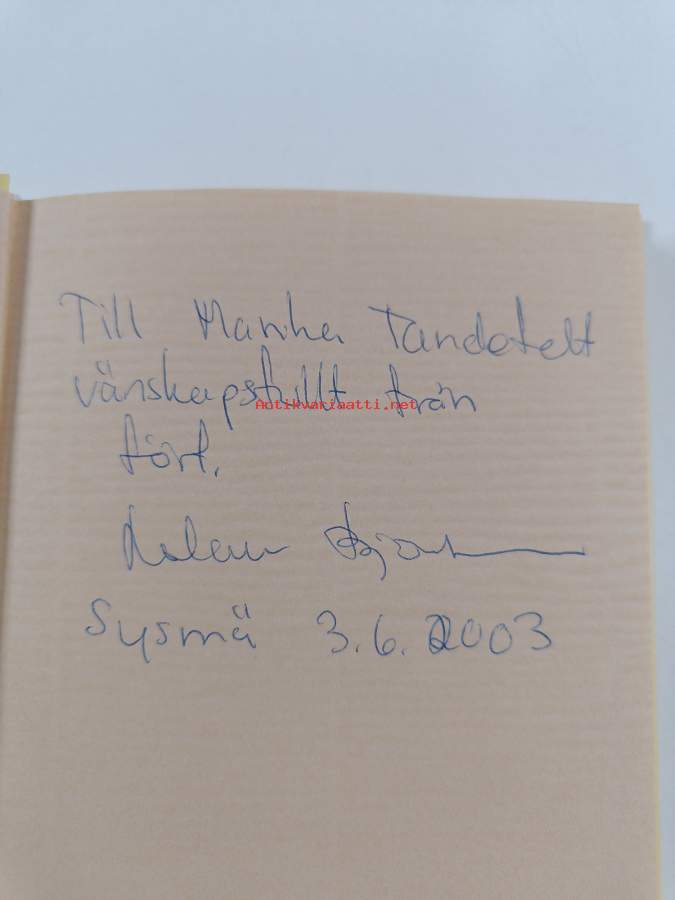 Till Marika Tandefelt
vänskapsfullt från
Antikvariaatti.net
förf.
Sysmä 3.6.2003